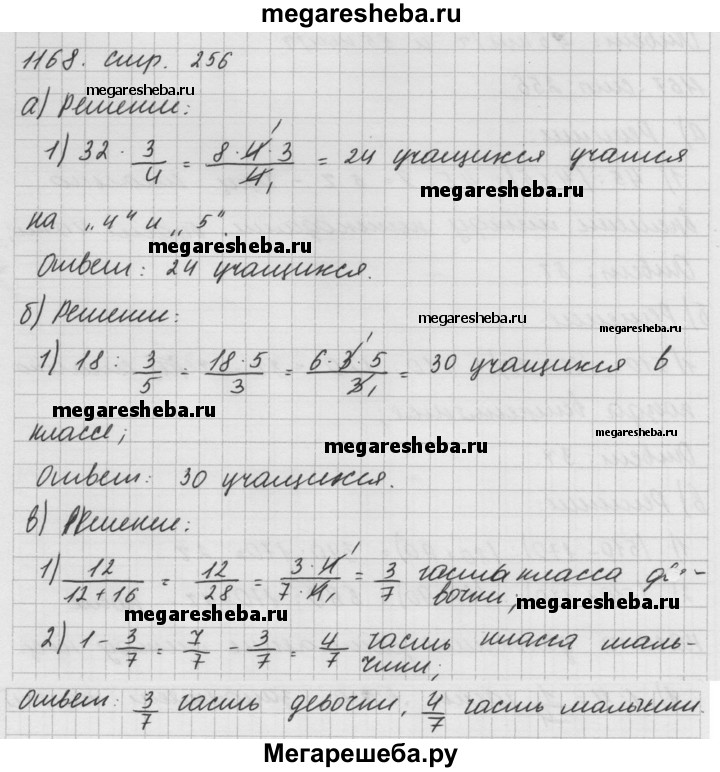 megaresheba.ru
1168. стр. 256
megaresheba.ru
а) Решение:
1) 32 · 3/4 = 8·4·3/4 = 24 учащихся учатся
megaresheba.ru
на „4" и „5".
megaresheba.ru
Ответ: 24 учащихся.
б) Решение:
megaresheba.ru
megaresheba.ru
1) 18 : 3/5 = 18·5/3 = 6·3·5/3 = 30 учащихся в
megaresheba.ru
классе;
megaresheba.ru
megaresheba.ru
Ответ: 30 учащихся.
в) Решение:
1) 12/12+16 = 12/28 = 3·4/7·4 = 3/7 часть класса де-
вочки;
megaresheba.ru
megaresheba.ru
2) 1 - 3/7 = 7/7 - 3/7 = 4/7 часть класса маль-
чики;
Ответ: 3/7 часть девочки, 4/7 часть мальчики.
Мегарешеба.ру